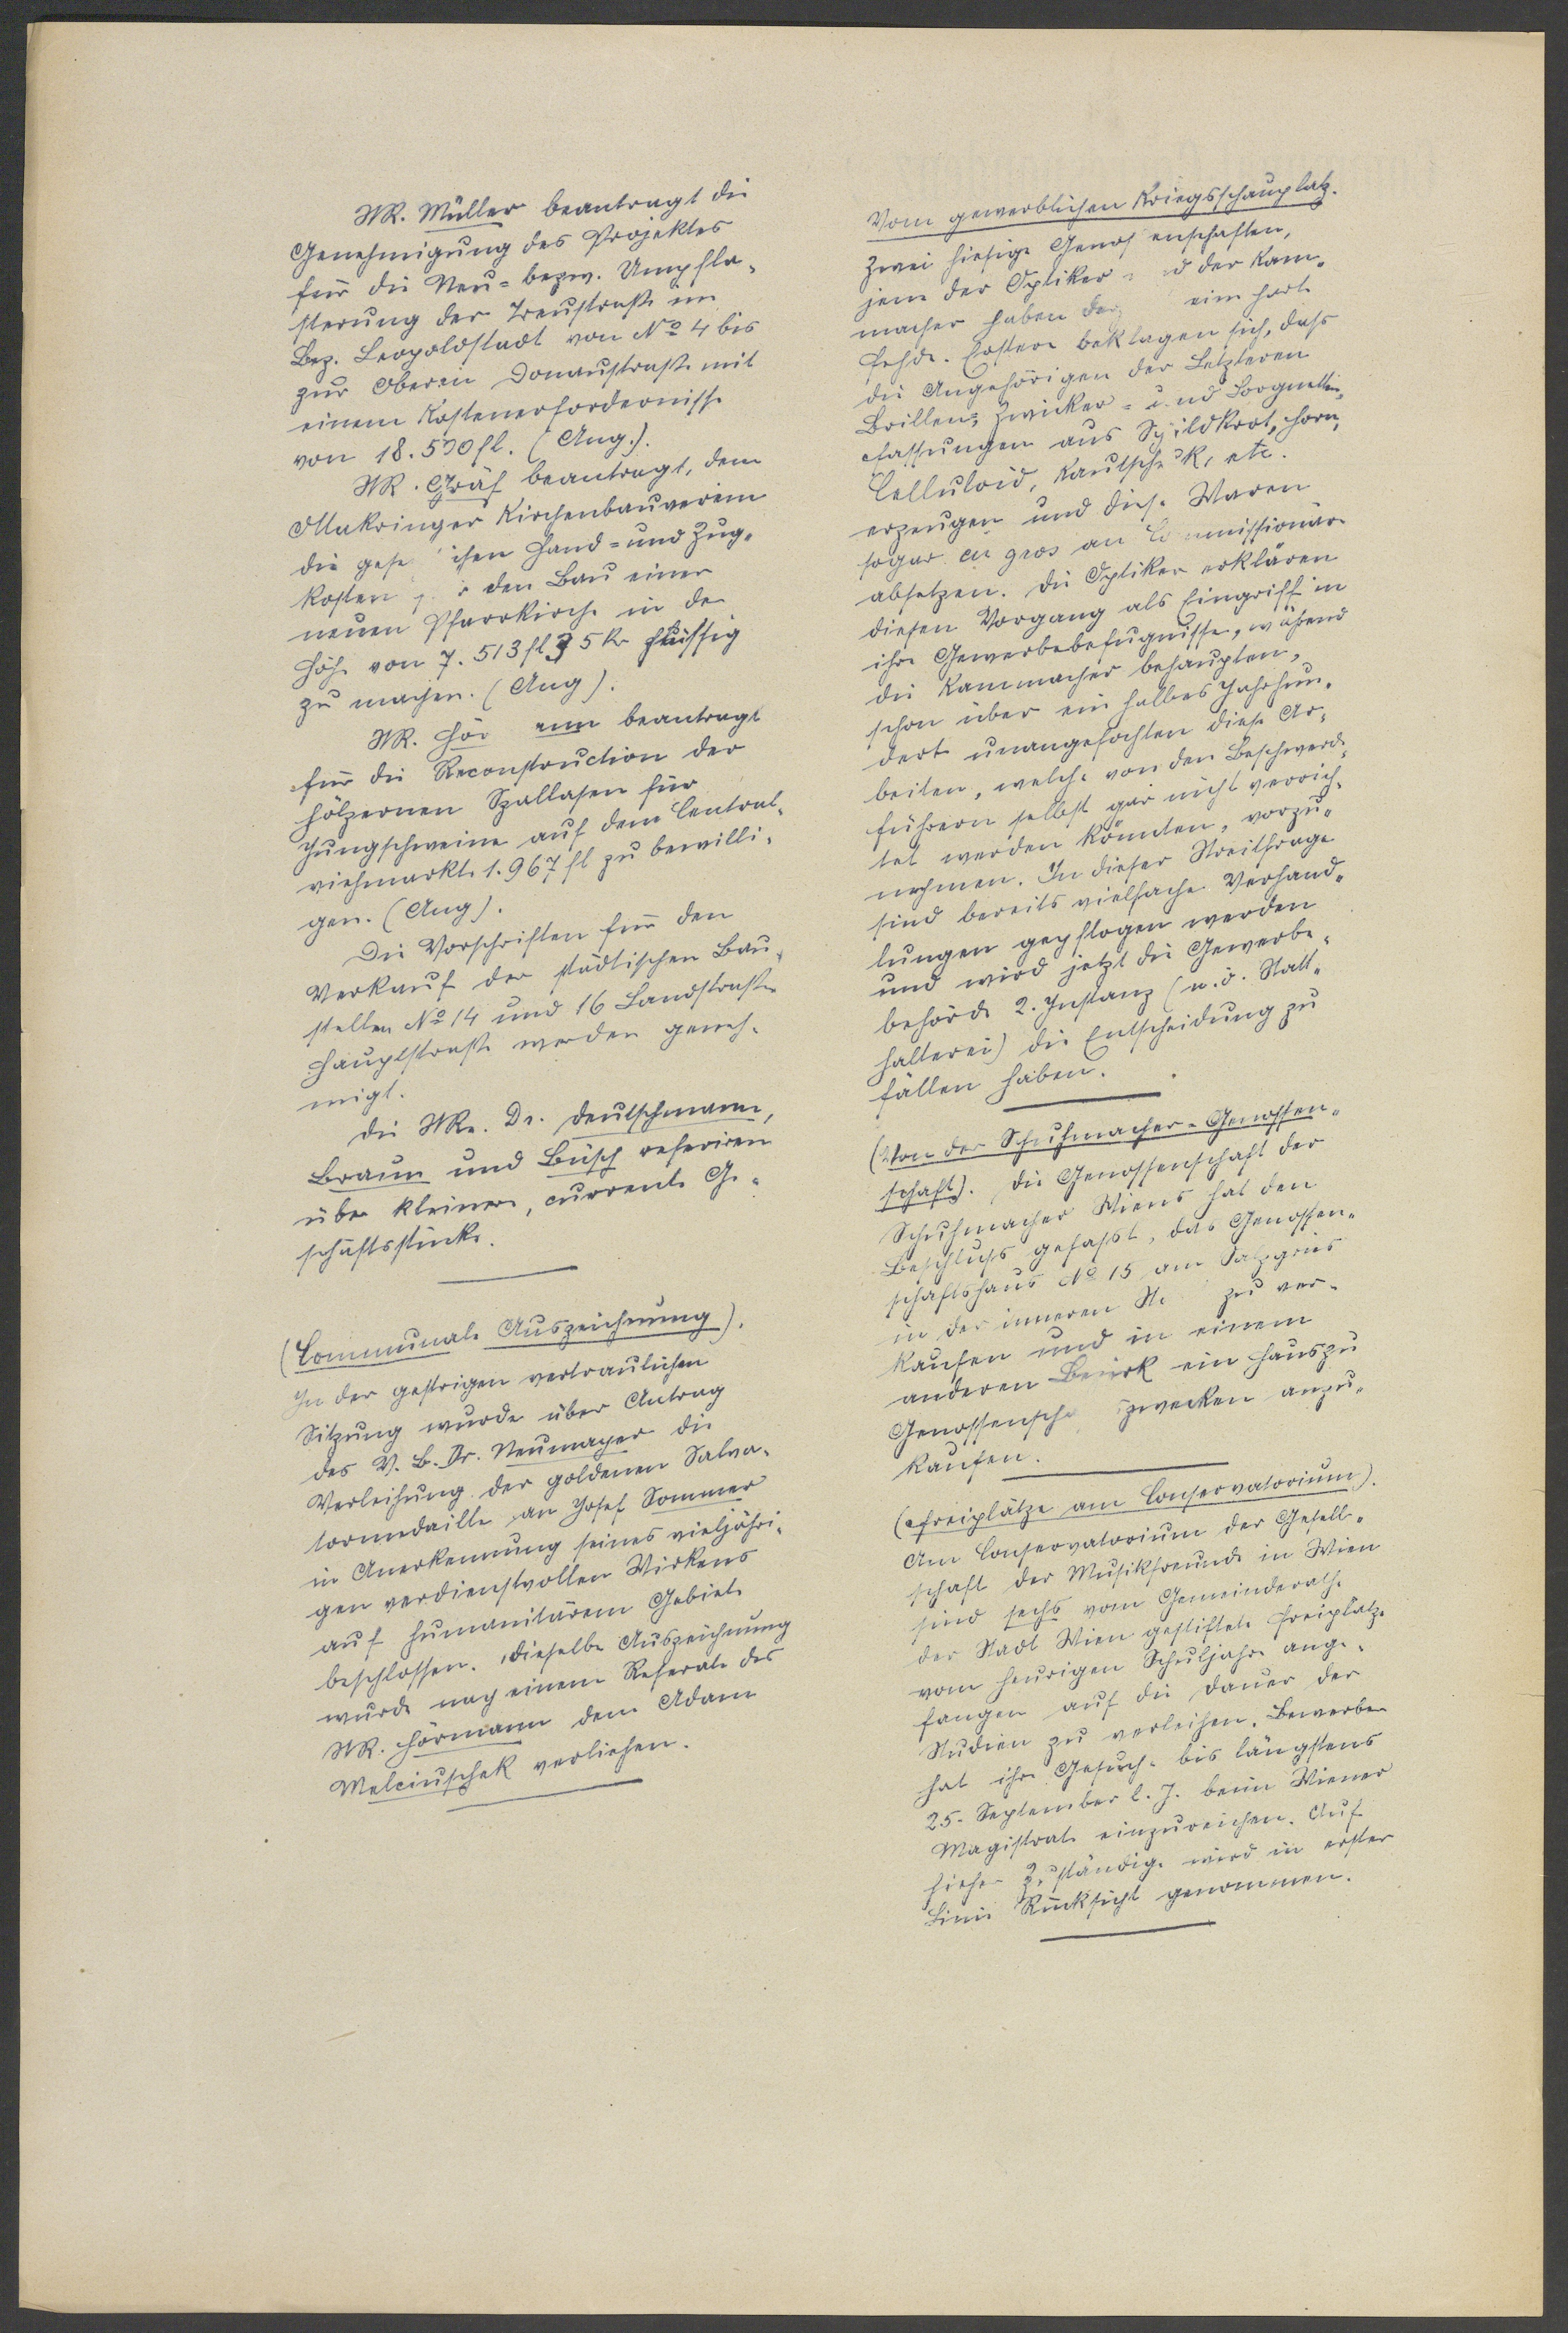 StR. Müller beantragt die
Genehmigung des Projektes
für die Neu- bezw. Umpfla-
sterung der Treustraße im
Bez. Leopoldstadt von No 4 bis
zur Oberen Donaustraße mit
einem Kostenerfordernisse
von 18.530 fl. (Ang.).
StR. Gräf beantragt, dem
Ottakringer Kirchenbauverein
die Hand- und Zug-
kosten den Bau einer
neuen Pfarrkirche in der
Höhe von 7.513 fl 35 kr flüssig
zu machen. (Ang).
StR. Hör ann beantragt
für die Reconstruction der
hölzernen Szallasen für
Jungschweine auf dem Central-
viehmarkte 1.967 fl zu bewilli-
gen. (Ang).
Die Vorschriften für den
Verkauf der städtischen Bau-
stellen No 14 und 16 Landstraße
Hauptstraße werden geneh-
migt.
Die StRe. Dr. Deutschmann,
Braun und Büsch referiren
über kleinere, currente Ge-
schäftsstücke.
(Communale Auszeichnung).
In der gestrigen vertraulichen
Sitzung wurde über Antrag
des V. B. Dr. Neumayer die
Verleihung der goldenen Salva-
tormedaille an Josef Sommer
in Anerkennung seines vieljähri-
gen verdienstvollen Wirkens
auf humanitärem Gebiete
beschlossen. Dieselbe Auszeichnung
wurde nach einem Referate des
StR. Hörmann dem Adam
Melciuschek verliehen.
Vom gewerblichen Kriegsschauplatz.
Zwei hiesige Genos enschaften,
jene der Optiker und der Kam-
macher haben eine harte
Fehde. Erstere beklagen sich, dass
die Angehörigen der Letzteren
Brillen-, Zwicker- und Lorgnetten-
fassungen aus Schildkrot, Horn,
Celluloid, Kautschuk, etc.
erzeugen und diese Waren
sogar en gros an Commissionäre
absetzen. Die Optiker erklären
diesen Vorgang als Eingriff in
ihre Gewerbebefugnisse, während
die Kammacher behaupten,
schon über ein halbes Jahrhun-
dert unangefochten diese Ar-
beiten, welche von den Beschwerde-
führern selbst gar nicht verrich-
tet werden könnten, vorzu-
nehmen. In dieser Streitfrage
sind bereits vielfache Verhand-
lungen gepflogen werden
und wird jetzt die Gewerbe-
behörde 2. Instanz (n. ö. Statt-
halterei) die Entscheidung zu
fällen haben.
(Von der Schuhmacher-Genossen-
schaft). Die Genossenschaft der
Schuhmacher Wiens hat den
Beschluss gefasst, das Genossen-
schaftshaus No 15 am Salzgries
in der inneren St zu ver-
kaufen und in einem
anderen Bezirk ein Haus zu
Genossenscha zwecken anzu-
kaufen.
(Freiplätze am Conservatorium).
Am Conservatorium der Gesell-
schaft der Musikfreunde in Wien
sind sechs vom Gemeinderathe
der Stadt Wien gestiftete Freiplätze
vom heurigen Schuljahre ange-
fangen auf die Dauer der
Studien zu verleihen. Bewerber
hat ihre Gesuche bis längstens
25. September l. J. beim Wiener
Magistrate einzureichen. Auf
hieher Zuständige wird in erster
Linie Rücksicht genommen.